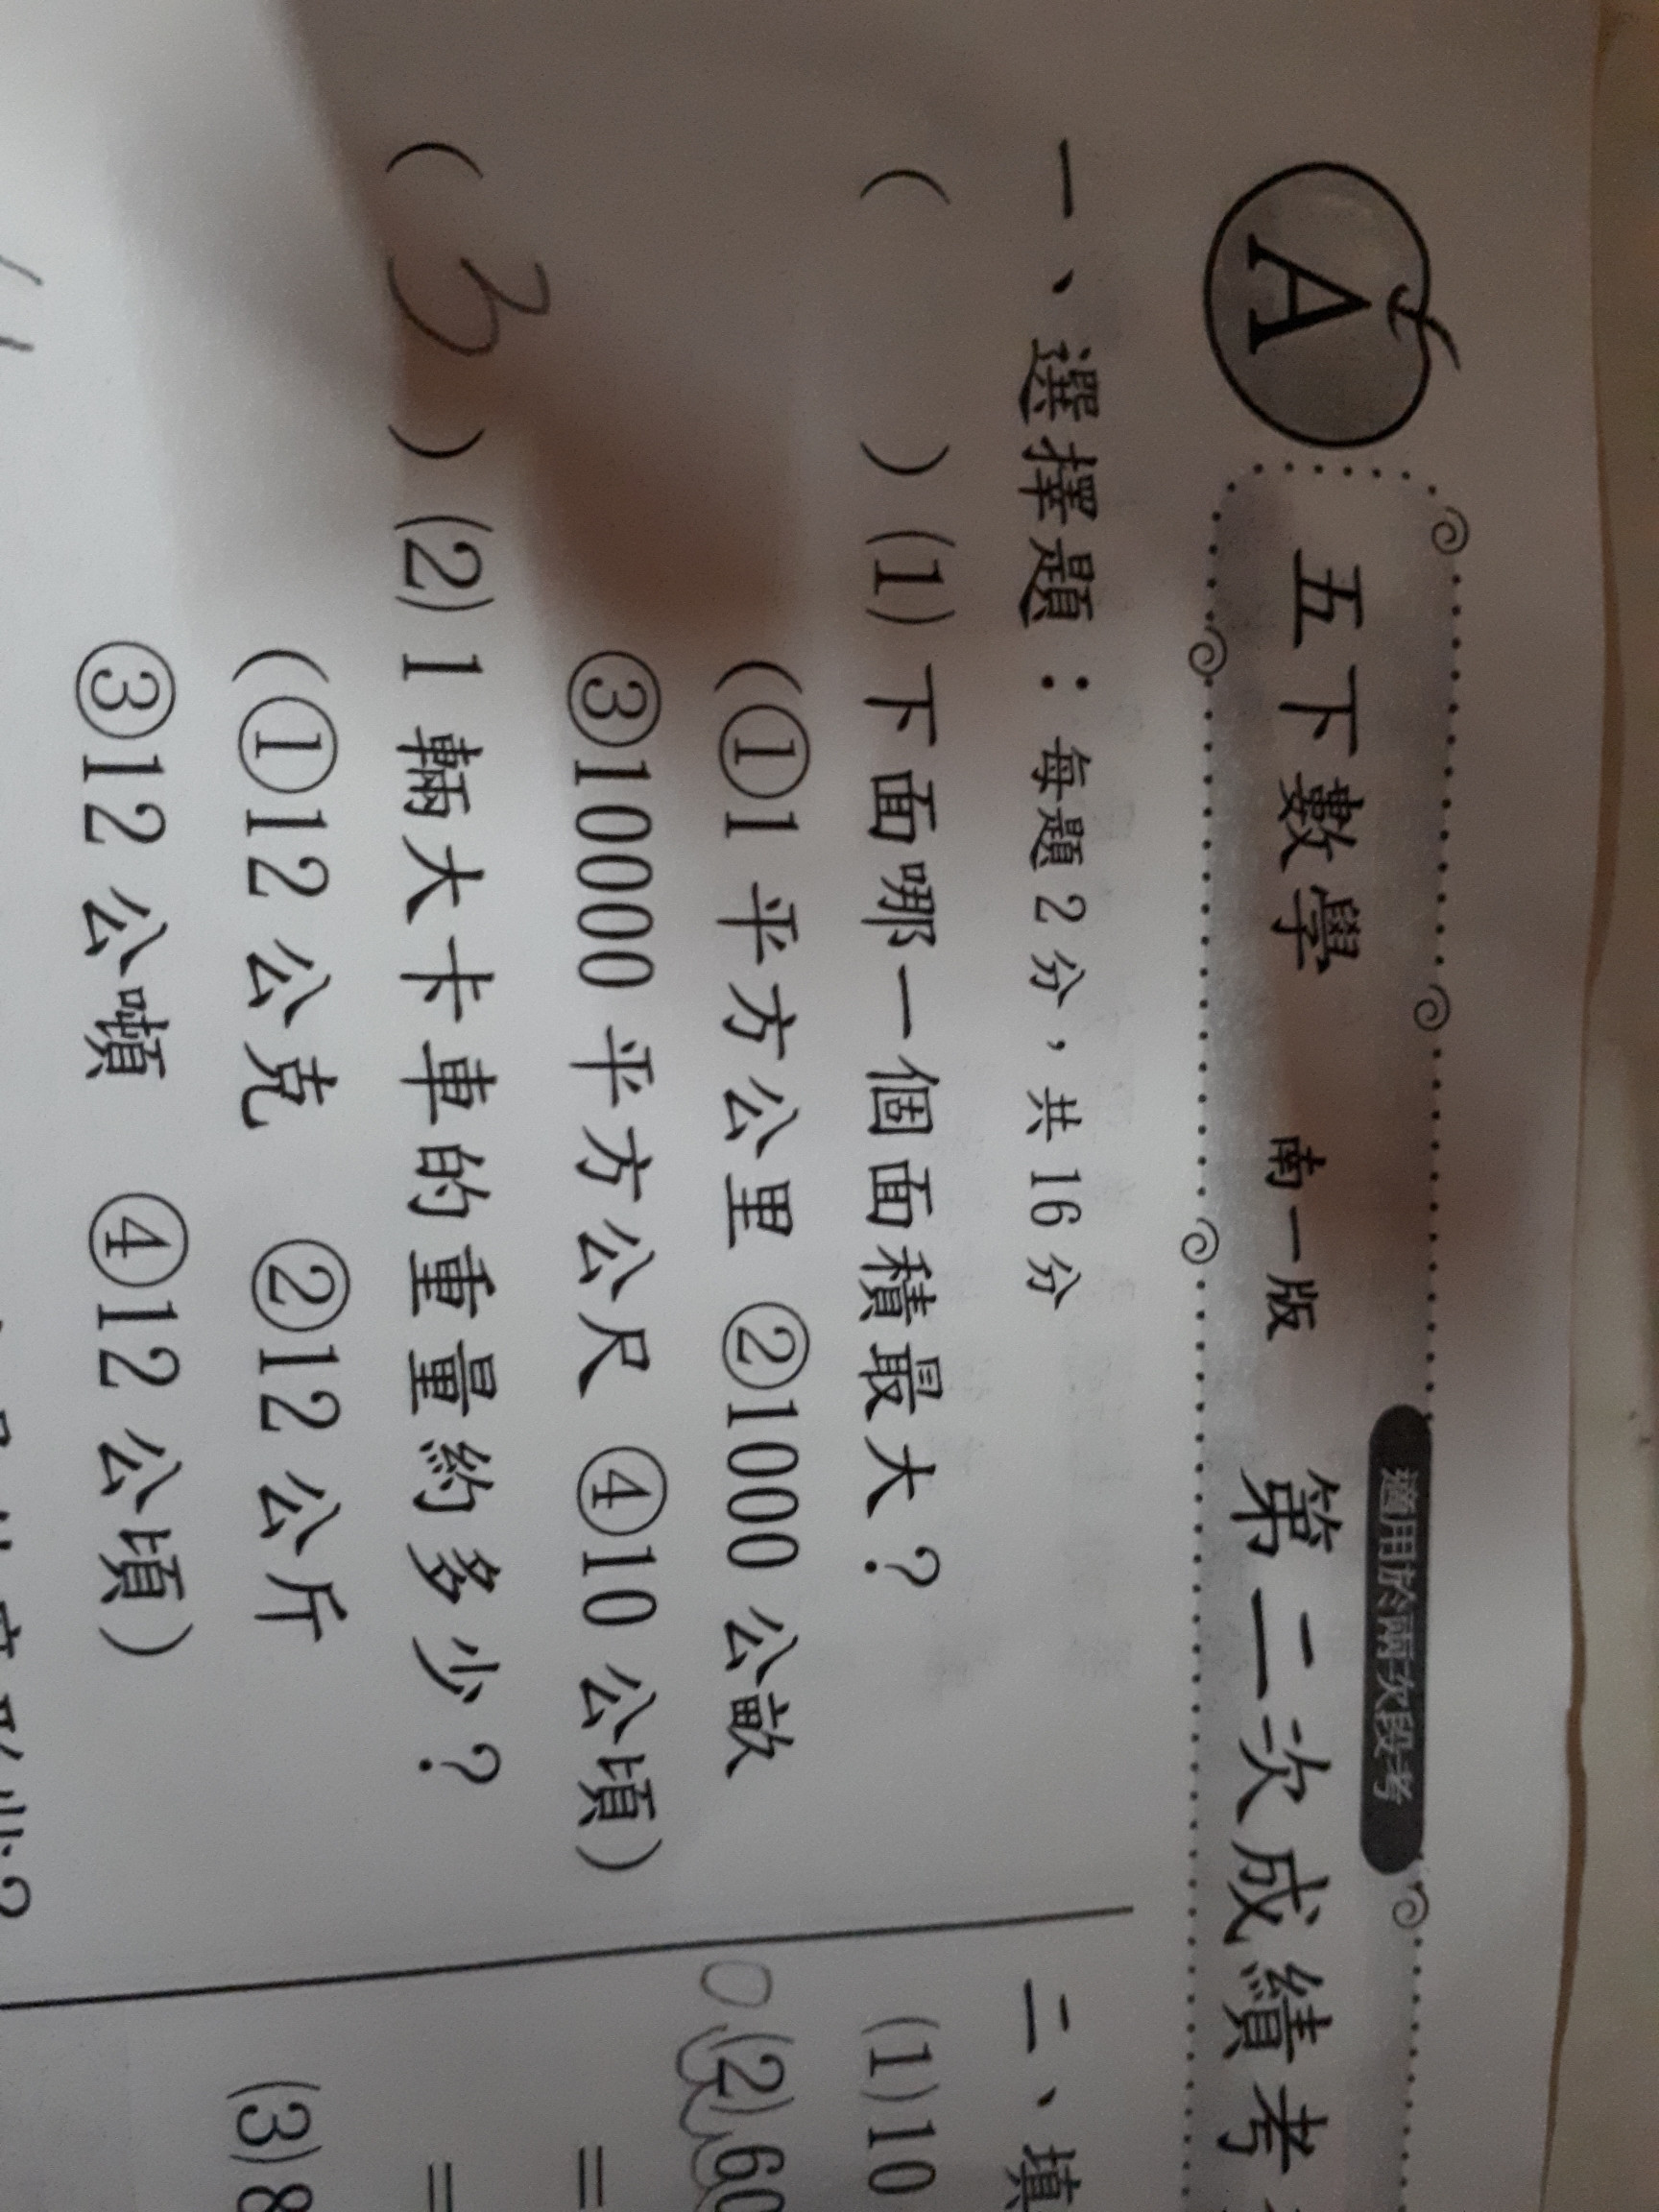 A
五下數學 南一版 第二次成績考
適用於兩次段考
一、選擇題：每題2分，共16分
( )(1)下面哪一個面積最大？
(①1平方公里 ②1000公畝
③10000平方公尺 ④10公頃)
(3)(2)1輛大卡車的重量約多少？
(①12公克 ②12公斤
③12公噸 ④12公頃)
二、填
(1)10
(2)60
=
=
(3)8